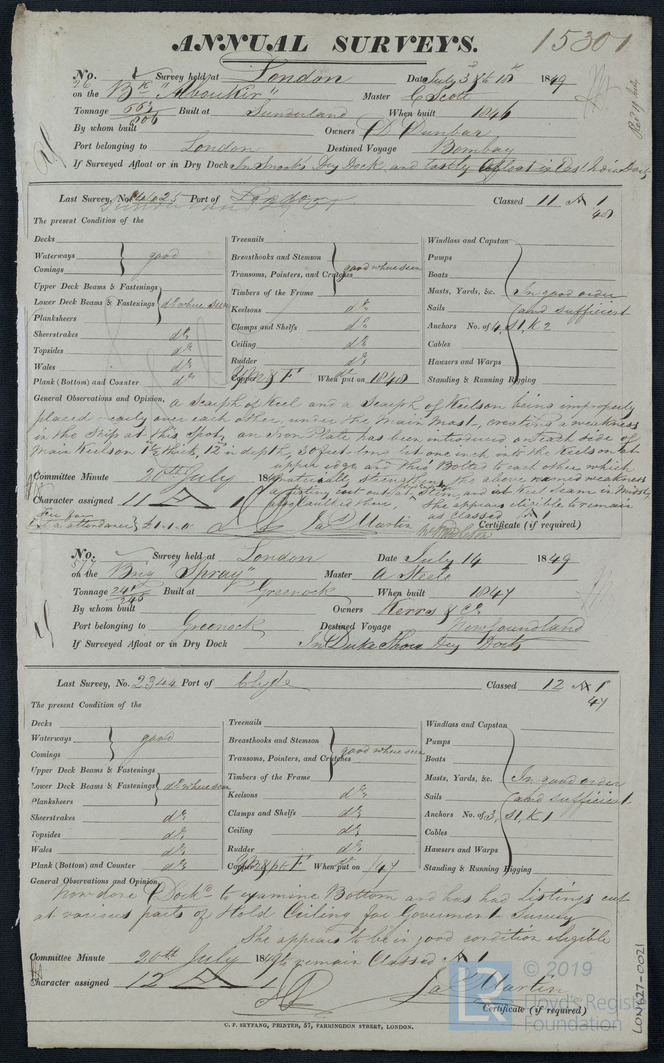 ANNUAL SURVEYS.
15301
No. Survey held at London Date July 3 1849
26 on the Bk "Aboukir" Master C Scott
Tonnage 662 806 Built at Sunderland When built 1846
By whom built Owners D Dunbar
Port belonging to London Destined Voyage Bombay
If Surveyed Afloat or in Dry Dock In Dry Dock, and lastly Afloat in East India Dock
Last Survey, No. Port of London Classed 11 A 1
48
The present Condition of the
Decks
Waterways good
Comings
Upper Deck Beams & Fastenings
Lower Deck Beams & Fastenings do where seen
Planksheers
Sheerstrakes do
Topsides do
Wales do
Plank (Bottom) and Counter do
Treenails
Breasthooks and Stemson
Transoms, Pointers, and Crutches good where seen
Timbers of the Frame
Keelsons do
Clamps and Shelfs do
Ceiling do
Rudder do
Copper When put on 1848
Windlass and Capstan
Pumps
Boats
Masts, Yards, &c. In good order
Sails and sufficient
Anchors No. of 4, S1, K2
Cables
Hawsers and Warps
Standing & Running Rigging
General Observations and Opinion, a Scarph of Keel and a Scarph of Keelson being improperly
placed nearly over each other, under the Main Mast, creating a weakness
in the Ship at this Spot, an Iron Plate has been introduced on each side of
Main Keelson thick, 12 in depth, 30 feet long let one inch into the Keelson at
upper edge and this Bolted to each other which
Committee Minute 20th July 1849 materially strengthens the above named weakness
a listing cut out at Stem, and at Keel Seam in Midships
Character assigned 11 A 1 She appears eligible to remain
as Classed A 1
Fee for attendance £1.1.0 Jas Martin Certificate (if required)
No. Survey held at London Date July 14 1849
577 on the Brig "Spray" Master A Steele
Tonnage 241 245 Built at Greenock When built 1847
By whom built Owners Kerrs & Co.
Port belonging to Greenock Destined Voyage Newfoundland
If Surveyed Afloat or in Dry Dock In Duke Shore Dry Dock
Last Survey, No. 2344 Port of Clyde Classed 12 A 1
47
The present Condition of the
Decks
Waterways good
Comings
Upper Deck Beams & Fastenings
Lower Deck Beams & Fastenings do where seen
Planksheers
Sheerstrakes do
Topsides do
Wales do
Plank (Bottom) and Counter do
Treenails
Breasthooks and Stemson
Transoms, Pointers, and Crutches good where seen
Timbers of the Frame
Keelsons do
Clamps and Shelfs do
Ceiling do
Rudder do
Copper When put on /47
Windlass and Capstan
Pumps
Boats
Masts, Yards, &c. In good order
Sails and sufficient
Anchors No. of 3, S1, K1
Cables
Hawsers and Warps
Standing & Running Rigging
General Observations and Opinion,
Now done Docked to examine Bottom and has had listings cut
at various parts of Hold Ceiling for Goverment Survey
She appears to be in good condition eligible
Committee Minute 20th July 1849 to remain Classed A 1
Character assigned 12 A 1
Jas Martin
Certificate (if required)
C. F. SEYFANG, PRINTER, 57, FARRINGDON STREET, LONDON.
LR © 2019
Lloyd's Register
Foundation
LON627-0021